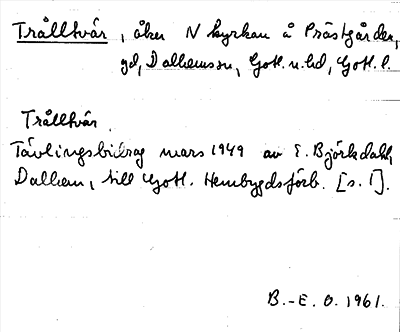 Trållhvár, åker N kyrkan å Prästgården,
gd, Dalhems sn, Gotl. n. hd, Gotl. l.
Trållhvár
Tävlingsbidrag mars 1949 av E. Björkdahl,
Dalhem, till Gotl. Hembygdsförb. [s. 1].
B.-E. O. 1961.